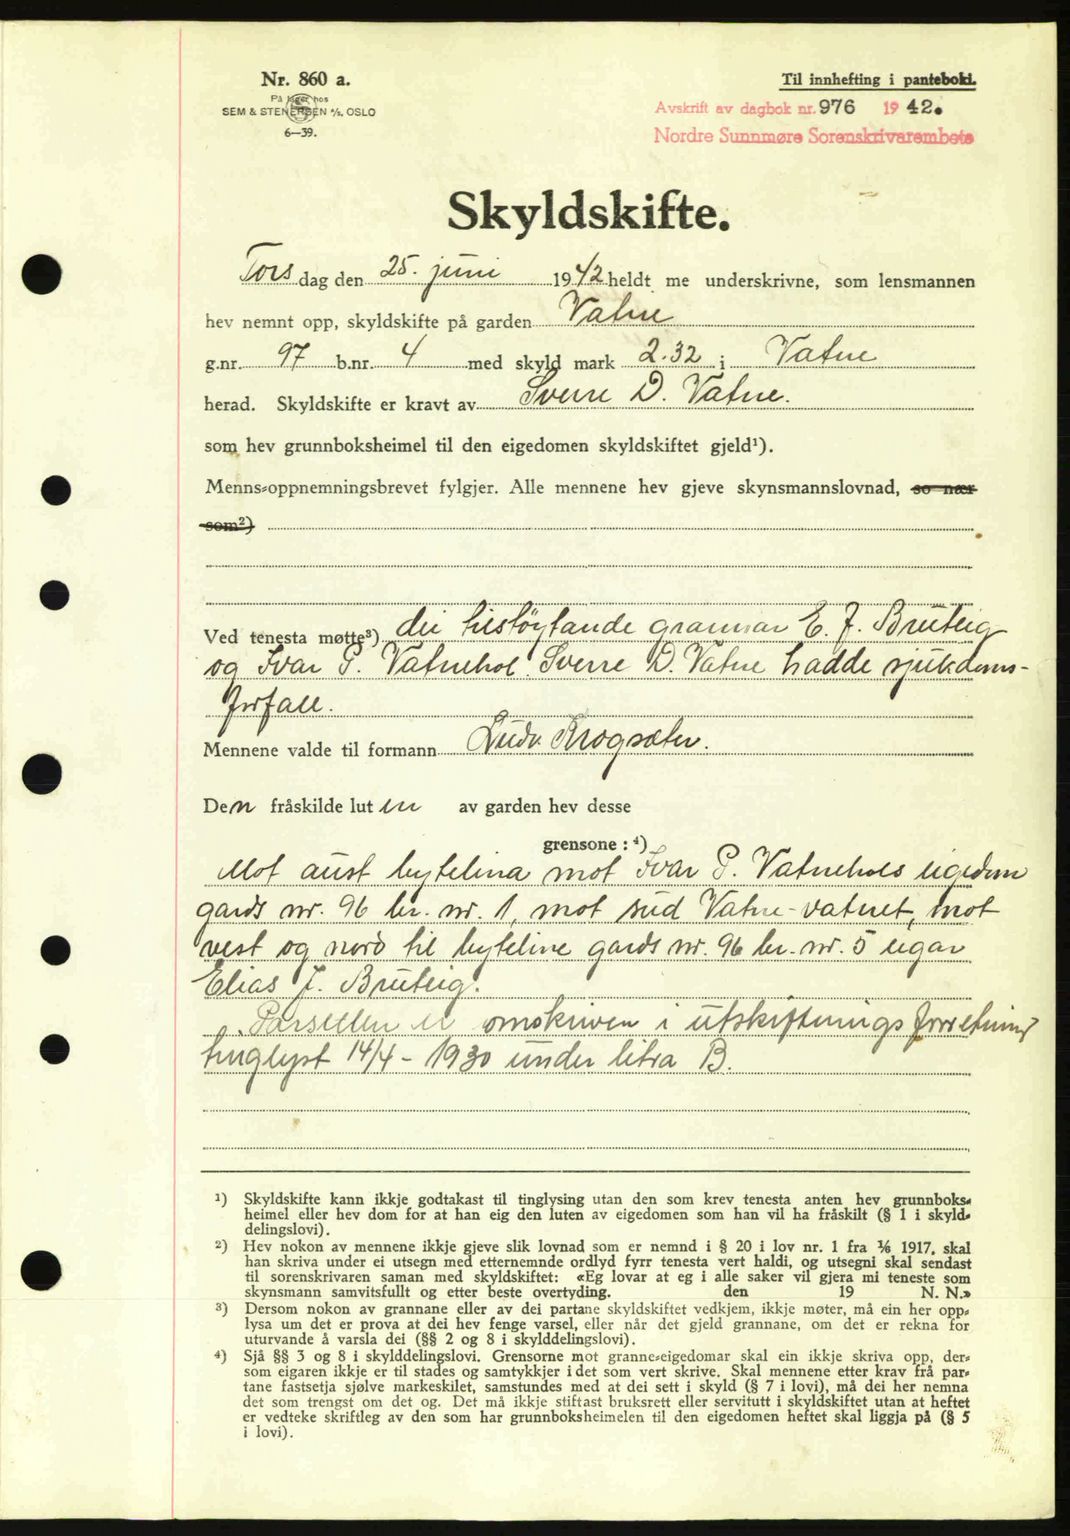 Nr. 860 a.
På lager hos
SEM & STENERSEN A/S. OSLO
6—39.
Til innhefting i panteboki.
Avskrift av dagbok nr. 976 1942.
Nordre Sunnmøre Sorenskrivarembete
Skyldskifte.
Torsdag den 25. juni 1942 heldt me underskrivne, som lensmannen
hev nemnt opp, skyldskifte på garden Vatne
g.nr. 97 b.nr. 4 med skyld mark 2.32 i Vatne
herad. Skyldskifte er kravt av Sverre D. Vatne.
som hev grunnboksheimel til den eigedomen skyldskiftet gjeld¹).
Menns-oppnemningsbrevet fylgjer. Alle mennene hev gjeve skynsmannslovnad, so nær
som²)
Ved tenesta møtte³) dei tilstøytande grannar E. J. Bruteig
og Ivar P. Vatnehol. Sverre D. Vatne hadde sjukdoms-
forfall.
Mennene valde til formann Ludv. Krogsæter.
Den fråskilde luten av garden hev desse
grensone : ⁴)
Mot aust bytelina mot Ivar P. Vatnehols eigedom
gards nr. 96 br. nr. 1, mot sud Vatne-vatnet, mot
vest og nord til byteline gards nr. 96 br. nr. 5 eigar
Elias J. Bruteig.
Parsellen er omskriven i utskiftningsforretning
tinglyst 14/4 - 1930 under litra B.
¹) Skyldskifte kann ikkje godtakast til tinglysing utan den som krev tenesta anten hev grunnboks-
heimel eller hev dom for at han eig den luten av eigedomen som han vil ha fråskilt (§ 1 i skyld-
delingslovi).
²) Hev nokon av mennene ikkje gjeve slik lovnad som er nemnd i § 20 i lov nr. 1 fra ⅙ 1917, skal
han skriva under ei utsegn med etternemnde ordlyd fyrr tenesta vert haldi, og utsegni skal sendast
til sorenskrivaren saman med skyldskiftet: «Eg lovar at eg i alle saker vil gjera mi teneste som
skynsmann samvitsfullt og etter beste overtyding. den 19 N. N.»
³) Dersom nokon av grannane eller av dei partane skyldskiftet vedkjem, ikkje møter, må ein her opp-
lysa um det er prova at dei hev fenge varsel, eller når det gjeld grannane, om det er rekna for
uturvande å varsla dei (§§ 2 og 8 i skylddelingslovi).
⁴) Sjå §§ 3 og 8 i skylddelingslovi. Grensorne mot granne-eigedomar skal ein ikkje skriva opp, der-
som eigaren ikkje er til stades og samtykkjer i det som vert skrive. Skal mennene etter krav frå par-
tane fastsetja sjølve markeskilet, samstundes med at dei sett i skyld (§ 7 i lovi), må dei her nemna
det som trengst om det og. Det må ikkje stiftast bruksrett eller servitutt i skyldskiftet utan at heftet
er vedteke skriftleg av den som har grunnboksheimelen til den eigedomen heftet skal liggja på (§ 5
i lovi).